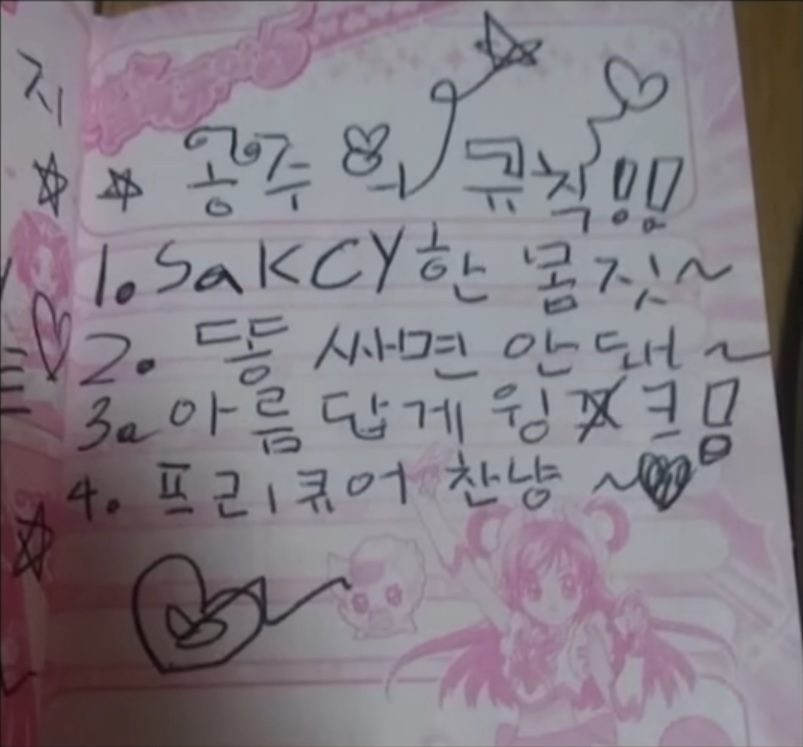 지
공주의 규칙!!
1. SaKCY한 몸짓~
2. 똥 싸면 안돼~
3. 아름답게 윙크!
4. 프리큐어 찬냥~